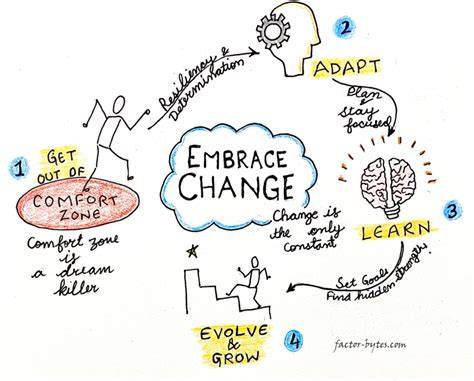 EMBRACE
CHANGE
Change is
the only
constant
1
GET
OUT OF
COMFORT
ZONE
Comfort zone
is
a dream
killer
Resiliency &
Determination
2
ADAPT
Plan &
stay
focused
3
LEARN
Set Goals
Find hidden strengths!
4
EVOLVE
&
GROW
factor-bytes.com